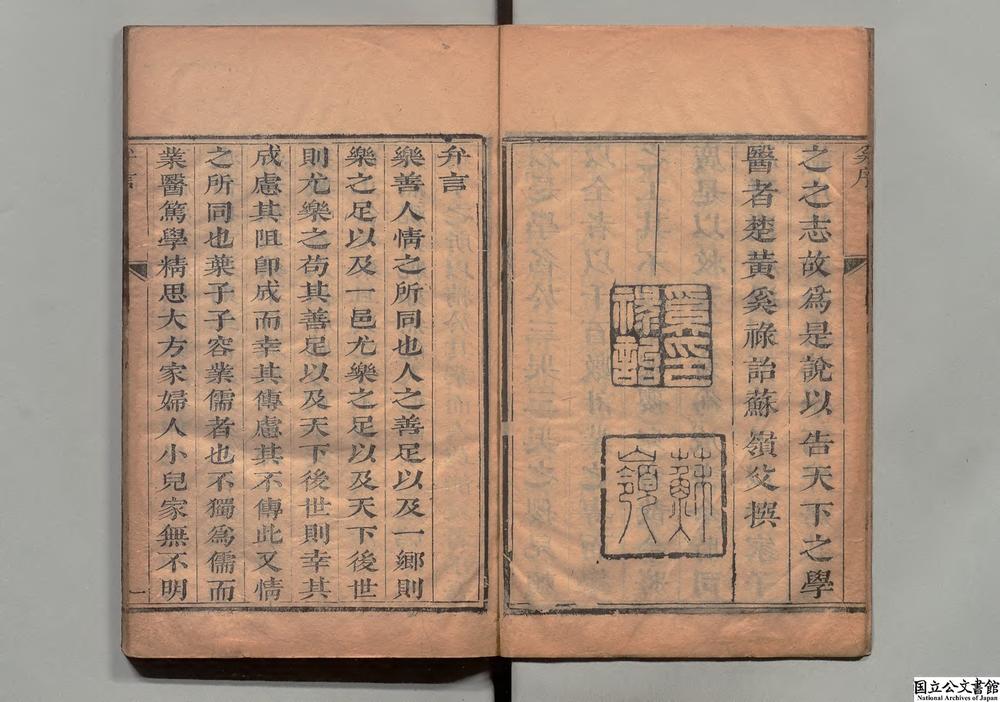 奚序
之之志故爲是說以告天下之學
醫者楚黄奚祿詒蘇嶺父撰
奚印
祿詒
蘇
嶺人
弁言
樂善人情之所同也人之善足以及一鄉則
樂之足以及一邑尤樂之足以及天下後世
則尤樂之苟其善足以及天下後世則幸其
成慮其阻卽成而幸其傳慮其不傳此又情
之所同也葉子子容業儒者也不獨爲儒而
業醫篤學精思大方家婦人小兒家無不明
弁言
一
国立公文書館
National Archives of Japan